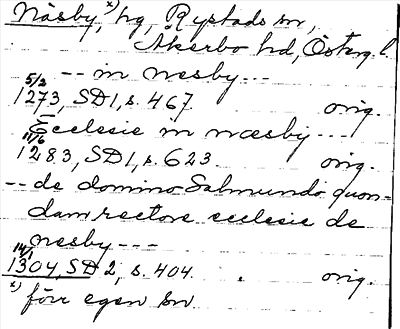 Näsby, x) hg, Rystads sn,
Åkerbo hd, Österg. l.
-- in nesby ---
5/2 1273, SD 1, s. 467. orig.
Ecclesie in næsby ---
11/6 1283, SD 1, s. 623 orig.
-- de domino Salmundo quon-
dam rectore ecclesie de
nesby ---
14/1 1304, SD 2, s. 404. orig.
x) förr egen sn